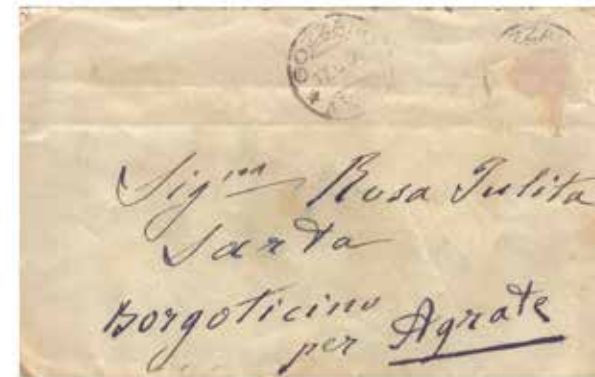 Sig.na Rosa Julita
Sarta
Borgoticino
per Agrate